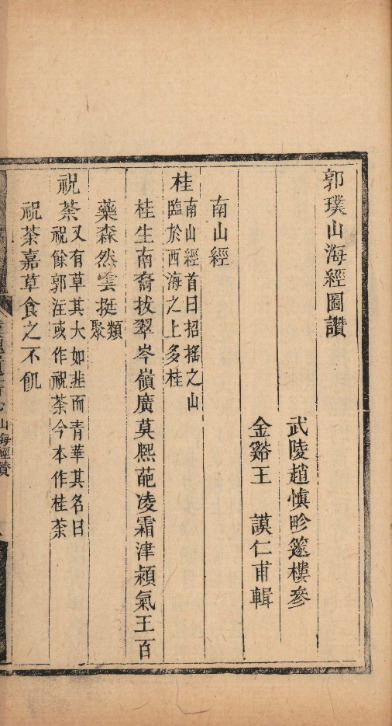 郭璞山海經圖讚
武陵趙慎畛篴樓參
金谿王　謨仁甫輯
南山經
桂南山經首曰招搖之山
臨於西海之上多桂
桂生南裔拔翠岑嶺廣莫熙葩凌霜津穎氣王百
藥森然雲挺類聚
祝荼又有草其大如韭而青華其名曰
祝餘郭注或作祝荼今本作桂荼
祝荼嘉草食之不飢
山海經贊